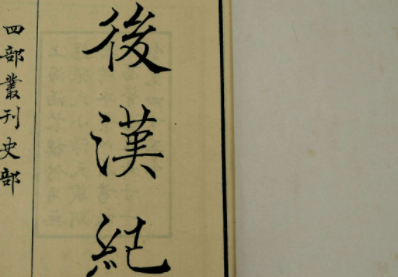 後漢紀
四部叢刊史部